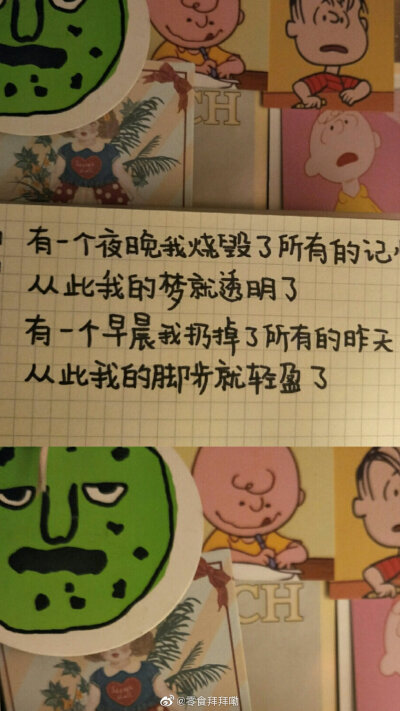 CH
有一个夜晚我烧毁了所有的记忆
从此我的梦就透明了
有一个早晨我扔掉了所有的昨天
从此我的脚步就轻盈了
CH
@零食拜拜嘞